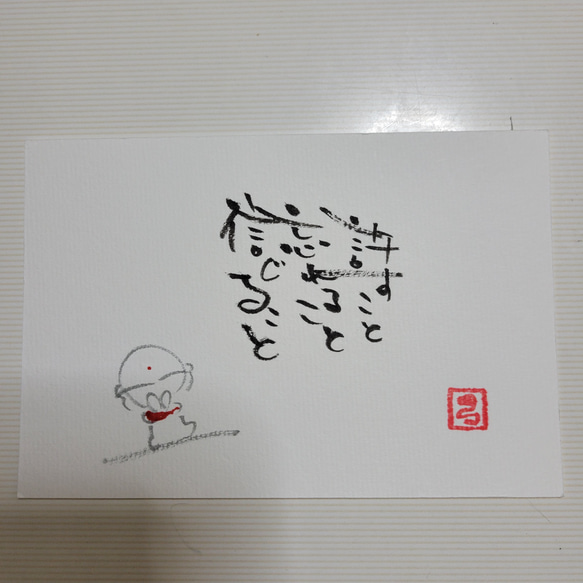 許すこと
忘れること
信じること